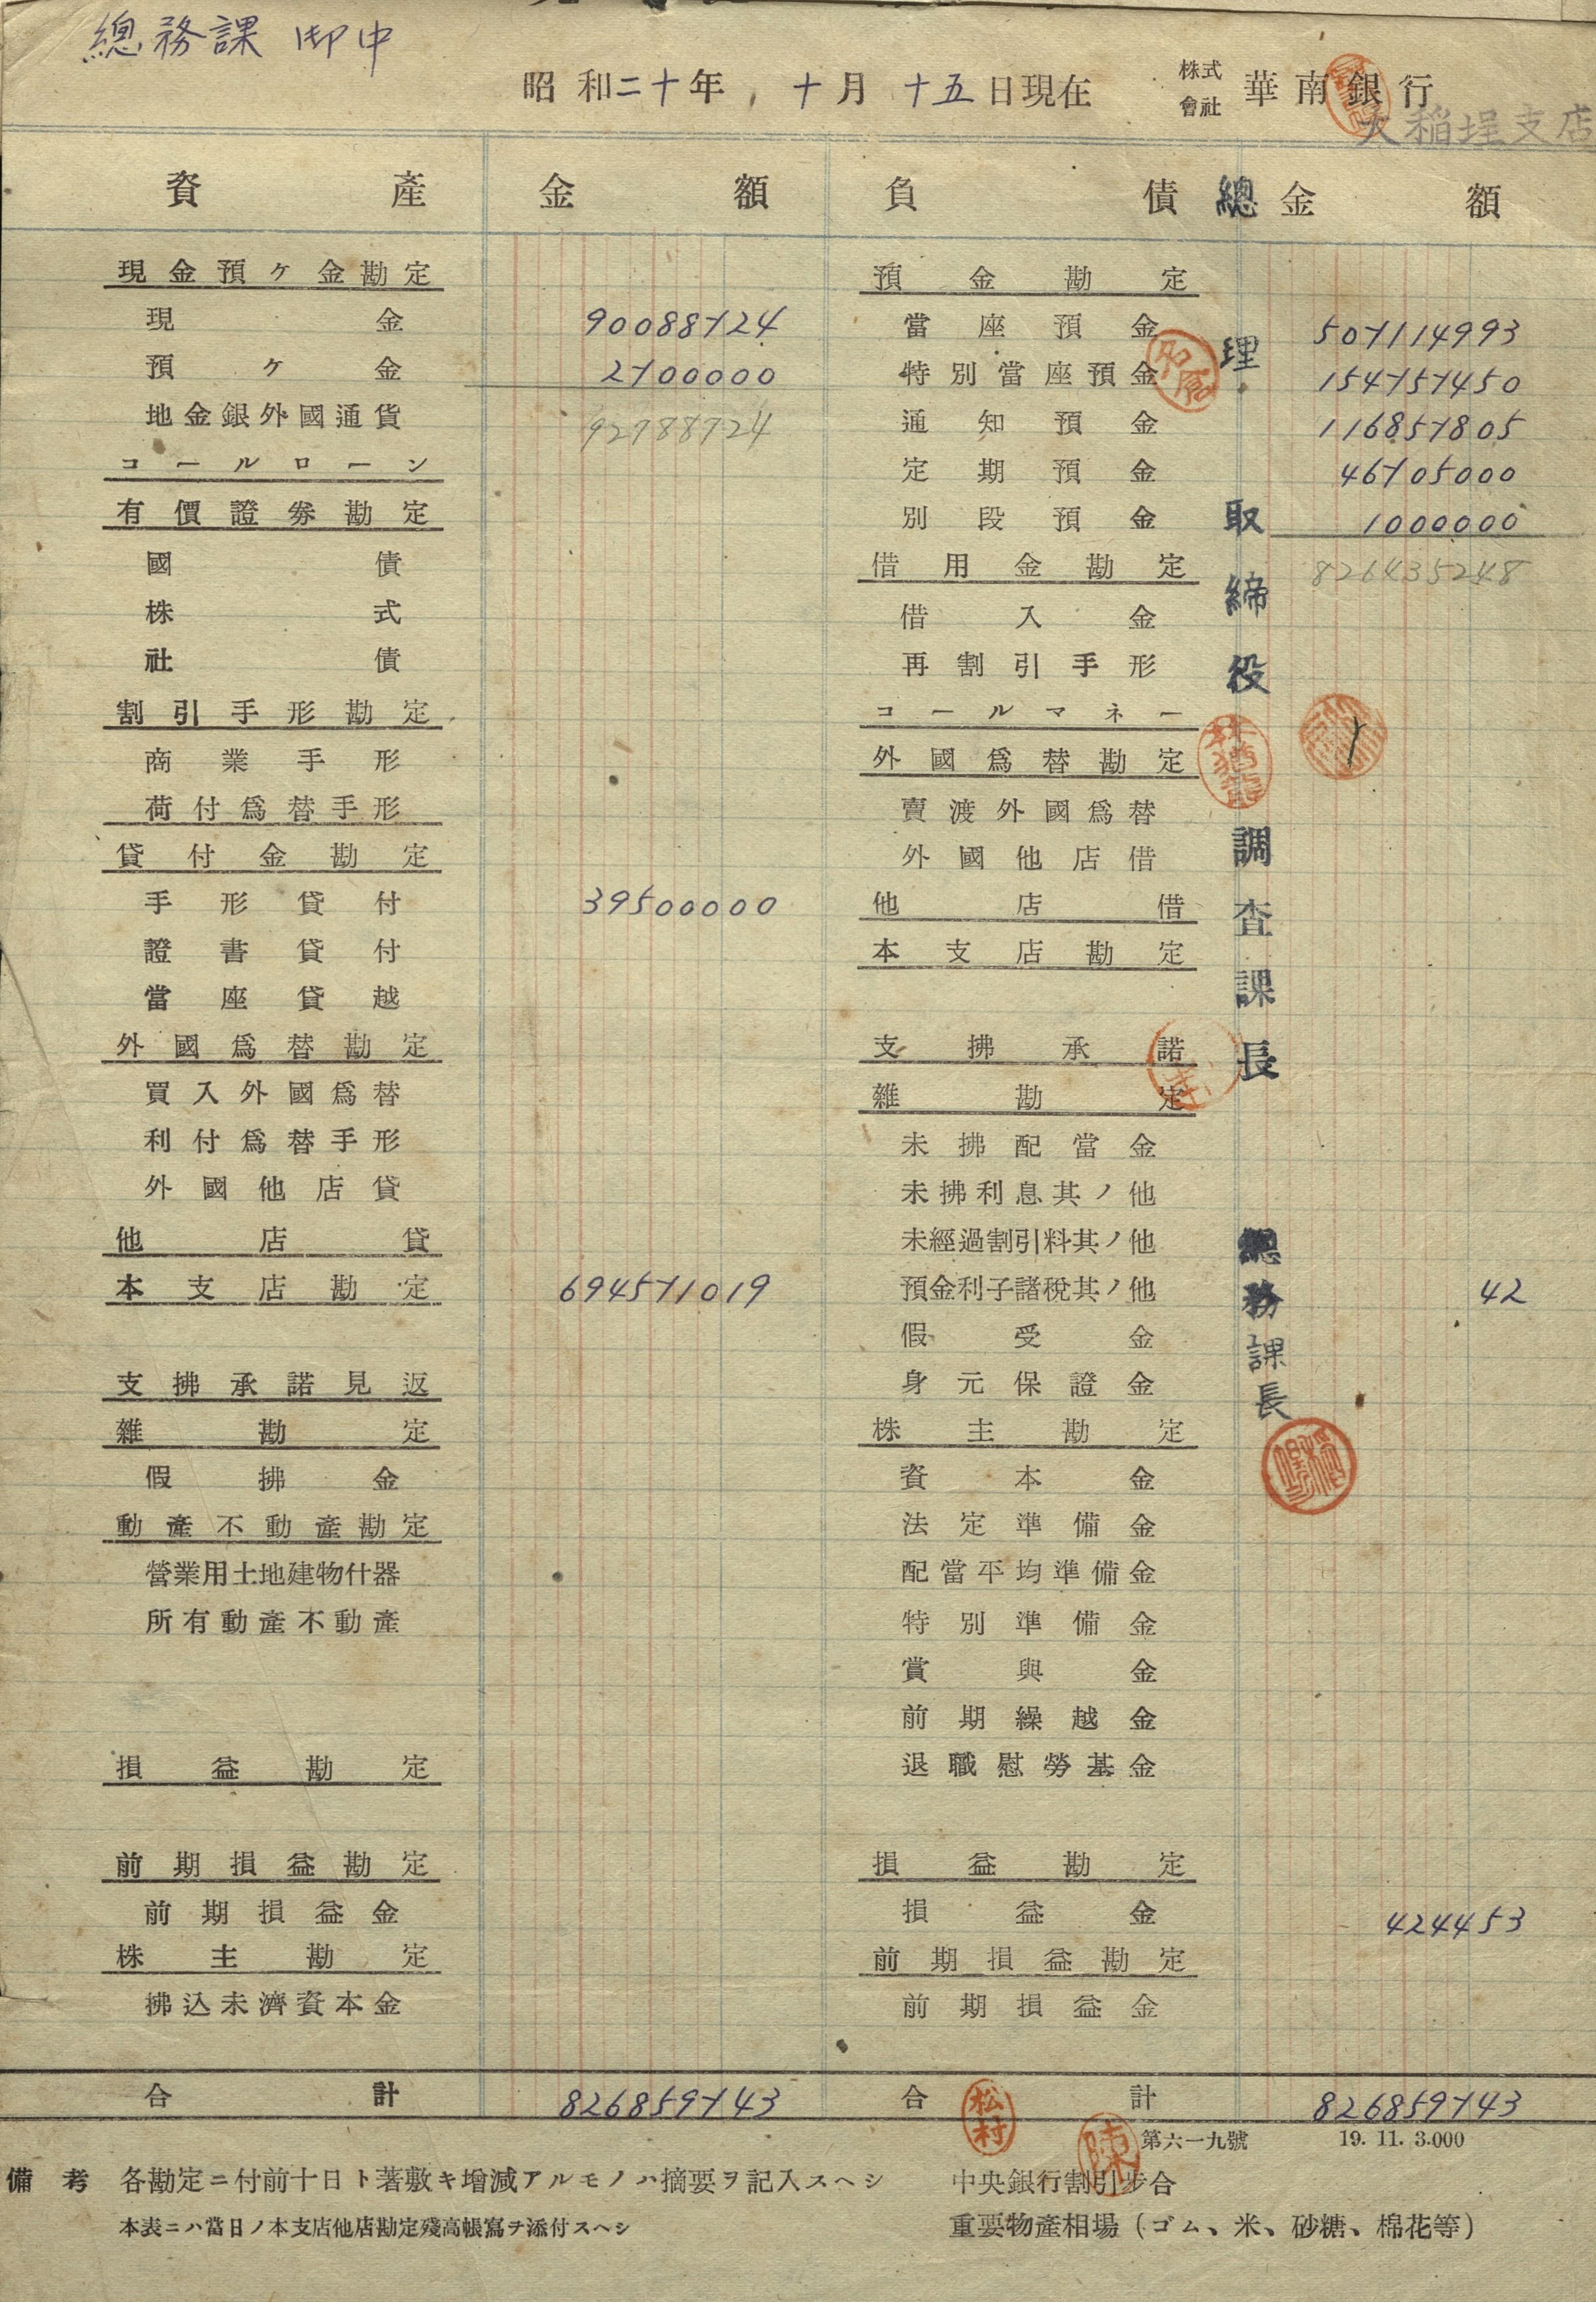 總務課 御中
昭和二十年 十月 十五日現在
株式會社 華南銀行
大稲埕支店
資產 金額
現金預ケ金勘定
現金 90088724
預ケ金 2700000
地金銀外國通貨 92788724
コールローン
有價證券勘定
國債
株式
社債
割引手形勘定
商業手形
荷付爲替手形
貸付金勘定
手形貸付 39500000
證書貸付
當座貸越
外國爲替勘定
買入外國爲替
利付爲替手形
外國他店貸
他店貸
本支店勘定 694571019
支拂承諾見返
雜勘定
假拂金
動產不動產勘定
營業用土地建物什器
所有動產不動產
損益勘定
前期損益勘定
前期損益金
株主勘定
拂込未濟資本金
合計 826859743
負債 金額
預金勘定
當座預金 507114993
特別當座預金 154757450
通知預金 116857805
定期預金 46705000
別段預金 1000000
借用金勘定 826435248
借入金
再割引手形
コールマネー
外國爲替勘定
賣渡外國爲替
外國他店借
他店借
本支店勘定
支拂承諾
雜勘定
未拂配當金
未拂利息其ノ他
未經過割引料其ノ他
預金利子諸稅其ノ他 42
假受金
身元保證金
株主勘定
資本金
法定準備金
配當平均準備金
特別準備金
賞與金
前期繰越金
退職慰勞基金
損益勘定
損益金 424453
前期損益勘定
前期損益金
合計 826859743
總理
名倉
取締役
林猶龍
調査課長
總務課長
松村
陳
第六一九號 19. 11. 3.000
備考 各勘定ニ付前十日ト著敷キ增減アルモノハ摘要ヲ記入スヘシ
本表ニハ當日ノ本支店他店勘定殘高帳寫ヲ添付スヘシ
中央銀行割引步合
重要物產相場(ゴム、米、砂糖、棉花等)